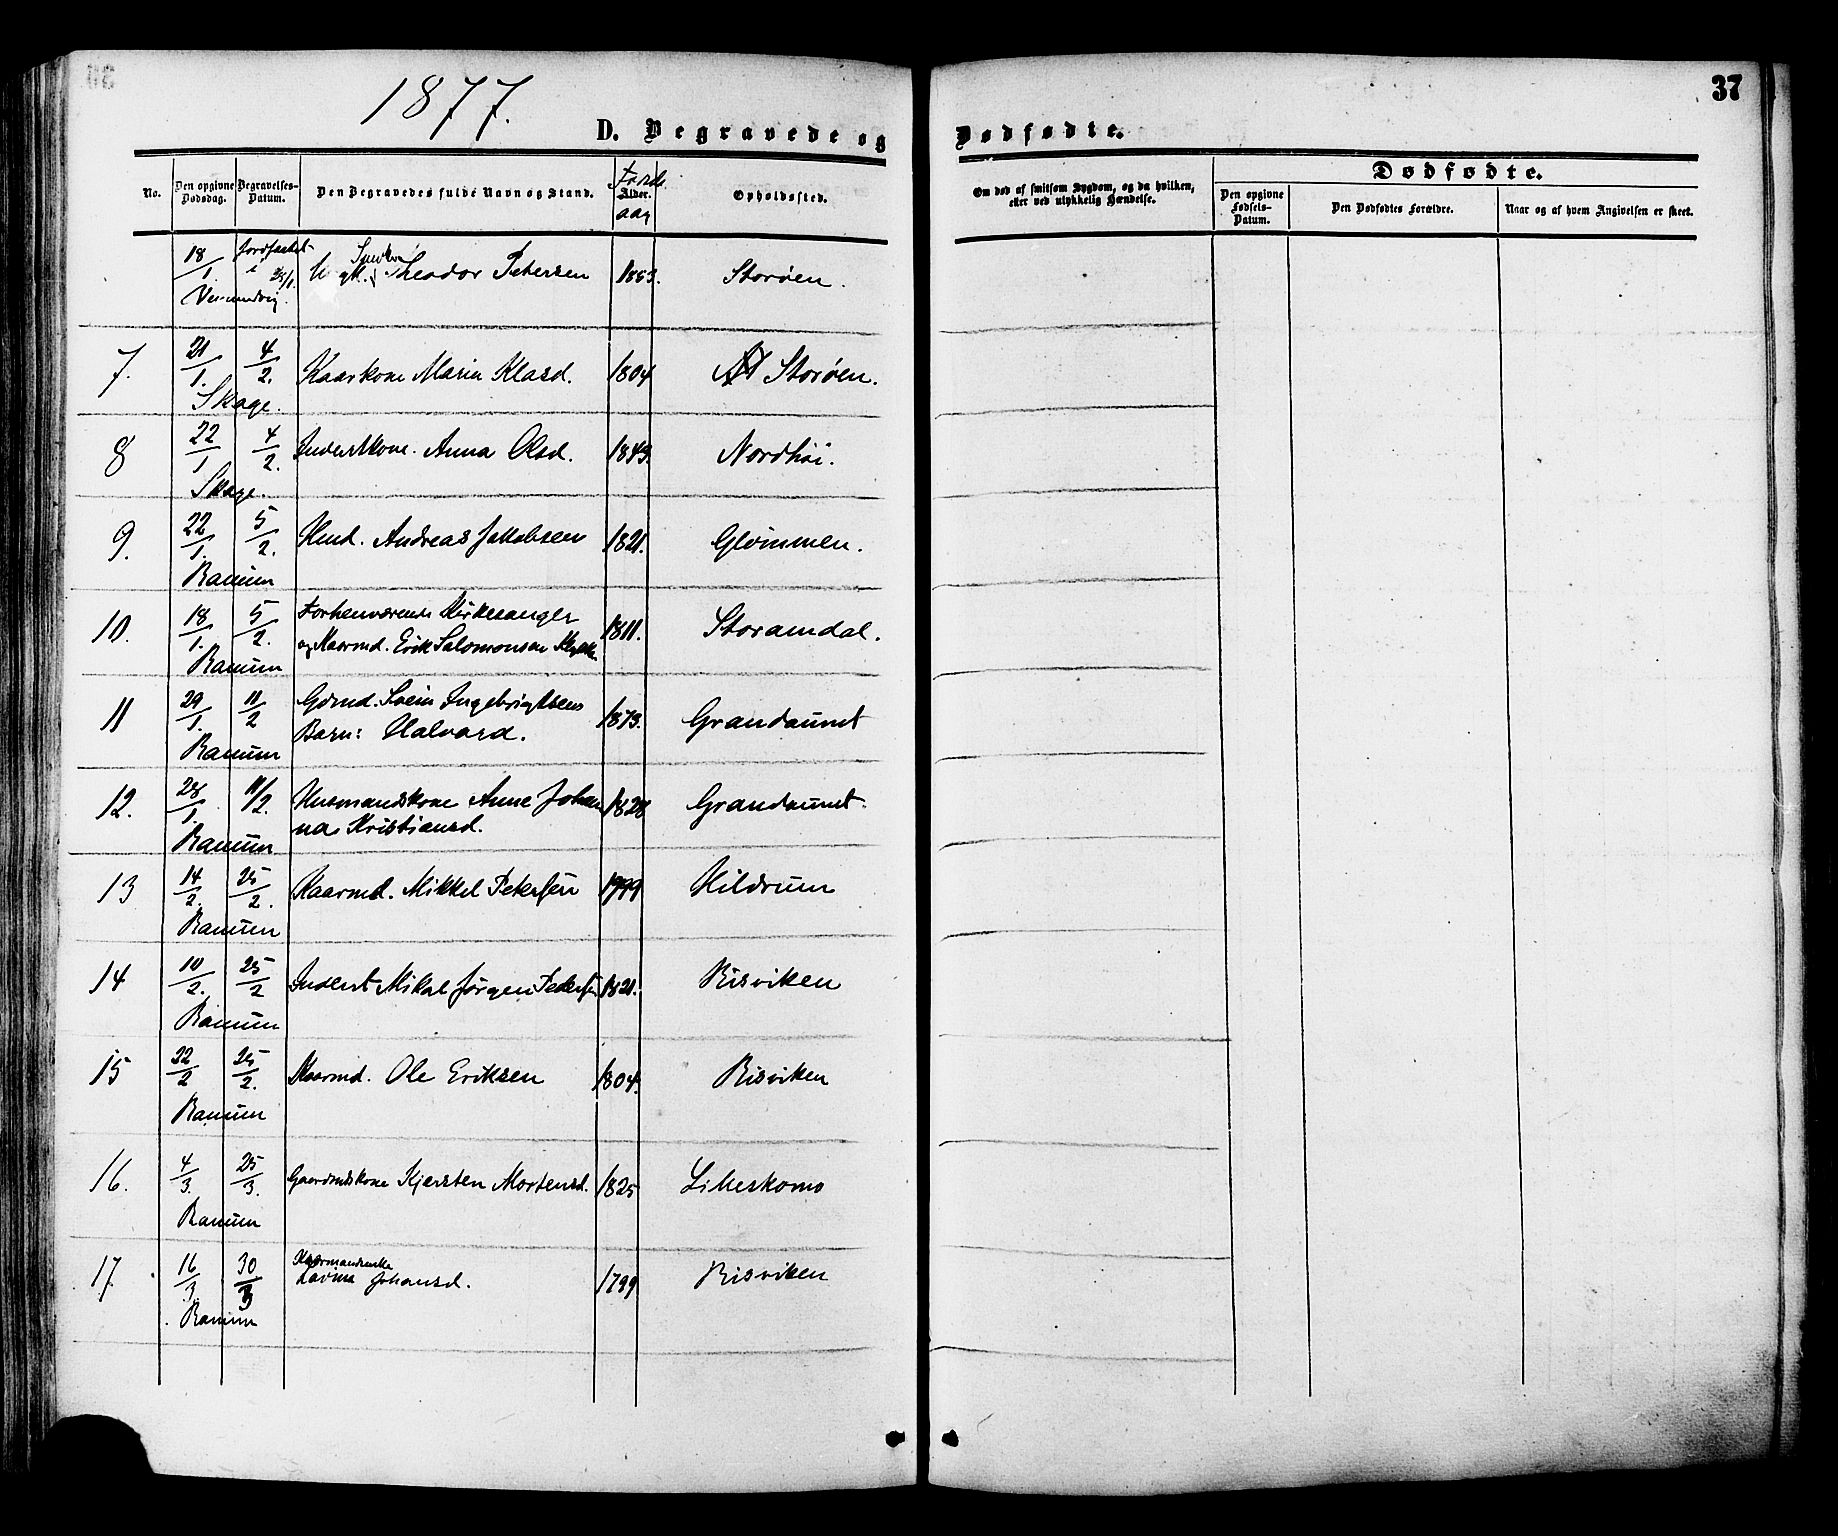 1877.
37
D. Begravede og Dødfødte.
No.
Den opgivne Dødsdag.
Begravelses-Datum.
Den Begravedes fulde Navn og Stand.
Føds.
Alder.
aar
Opholdssted.
Om død af smitsom Sygdom, og da hvilken, eller ved ulykkelig Hændelse.
Dødfødte.
Den opgivne Fødsels-Datum.
Den Dødfødtes Forældre.
Naar og af hvem Angivelsen er skeet.
18/1. Jordfæstet i 28/1. Theodor Petersen 1863. Storøen.
Vemundvig.
7. 21/1. 4/2. Kaarkone Maria Klasd. 1804 Storøen.
Skage.
8 22/1 4/2. Inderstkone. Anna Olsd. 1843. Nordhøi.
Skage.
9. 22/1. 5/2. Husmd. Andreas Jakobsen 1821. Glømmen.
Ranum
10. 18/1. 5/2. Forhenværende Kirkesanger
og Kaarmd. Erik Salomonsen 1811. Storamdal.
Ranum
11 29/1. 11/2 Gdmd. Svein Ingebrigtsens
Barn: Halvard. 1873. Grandaunet
Ranum
12. 28/1. 11/2. Husmandskone Anne Johan
na Kristiansd. 1828 Grandaunet.
Ranum
13 14/2. 25/2. Kaarmd. Mikkel Petersen 1799 Hildrum
Ranum
14 10/2. 25/2 Inderst Mikal Jørgen Pedersen 1821. Risviken
Ranum
15 22/2 25/2. Kaarmd. Ole Eriksen 1804. Risviken
Ranum
16. 4/3. 25/3. Gaardmdskone Kjersten Mortensd. 1825 Lilleskomo
Ranum
17. 16/3. 30/3 Kaarmandsenke
Lavina Johansd. 1799 Risviken
Ranum